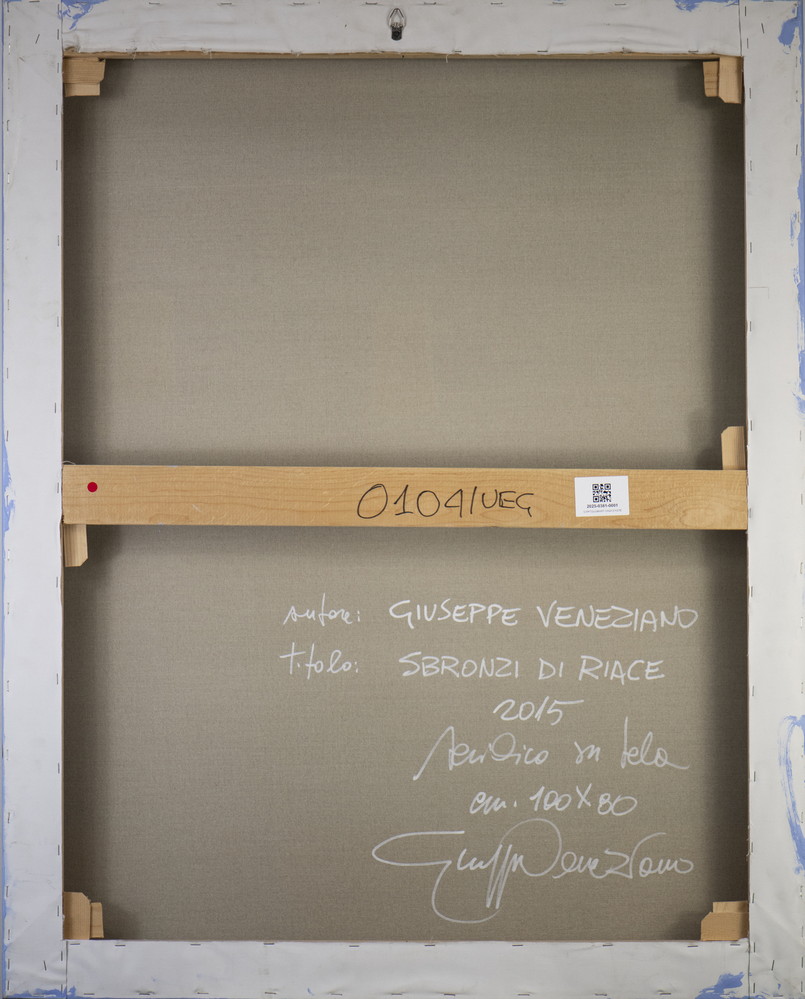 0104/VEG
2023-0381-0001
autore: GIUSEPPE VENEZIANO
titolo: SBRONZI DI RIACE
2015
Acrilico su tela
cm. 100X80
Giuseppe Veneziano